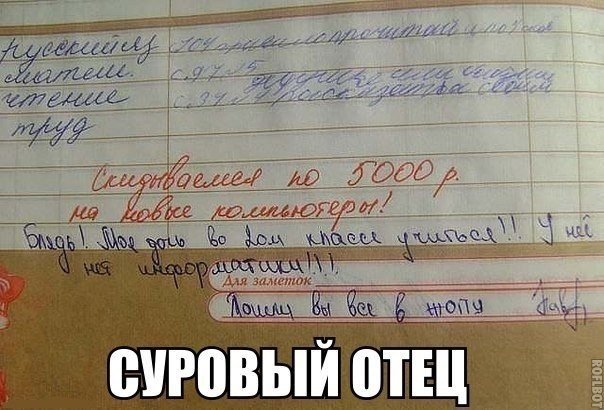 русский яз 104 правило прочитать и
матем. с. 97 15
чтение с. 34
труд
Скидываемся по 5000 р.
на новые компьютеры!
Блядь! Моя дочь во 2ом классе учиться!! У неё
нет информатики!!!
Для заметок
Пошли вы все в жопу
СУРОВЫЙ ОТЕЦ
ROFLBOT